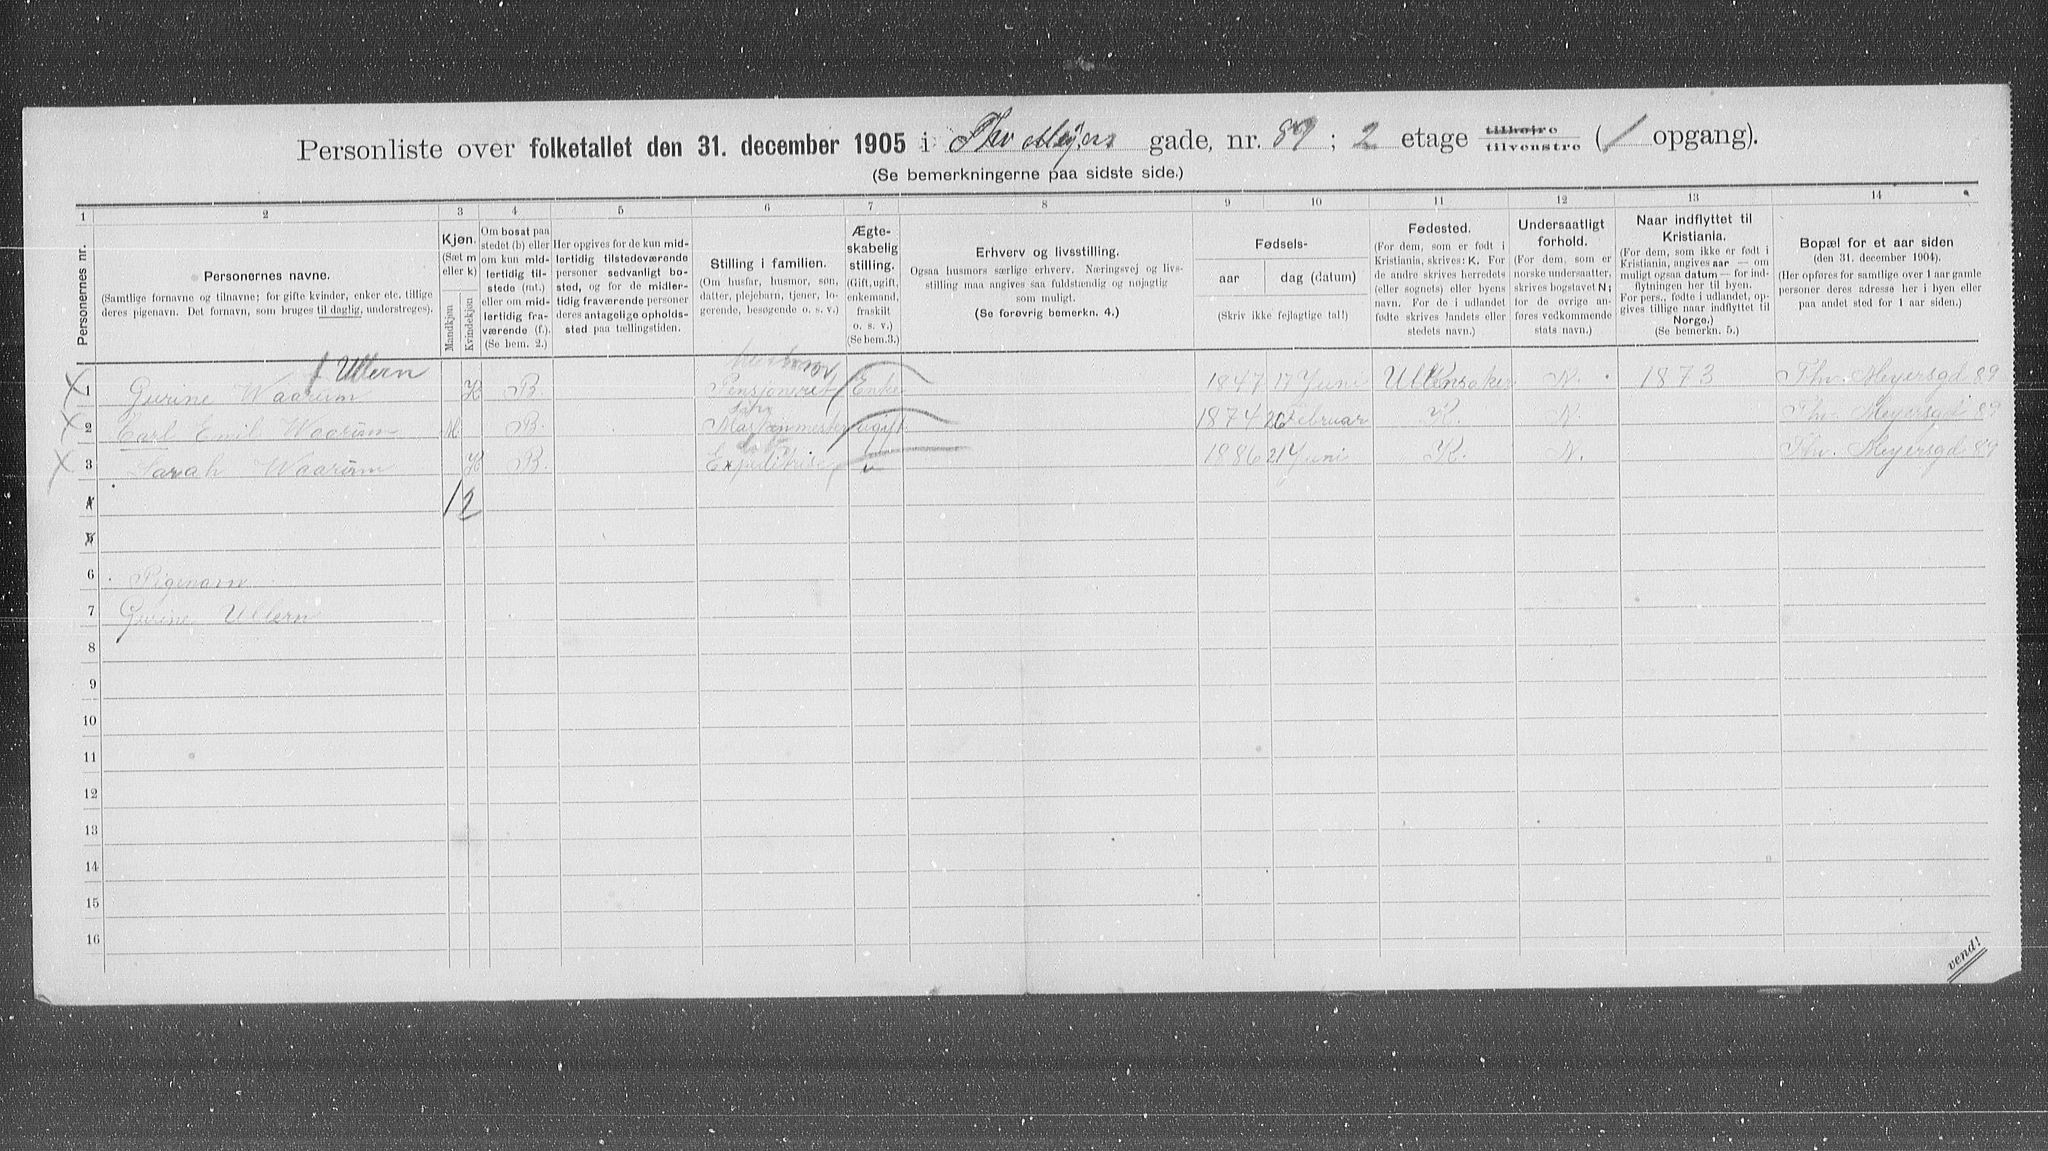 Personliste over folketallet den 31. december 1905 i Thv Meyers gade, nr. 89 ; 2 etage tilhøjre tilvenstre ( / opgang).
(Se bemerkningerne paa sidste side.)
1 2 3 4 5 6 7 8 9 10 11 12 13 14
Personernes nr.
Personernes navne.
(Samtlige fornavne og tilnavne; for gifte kvinder, enker etc. tillige
deres pigenavn. Det fornavn, som bruges til daglig, understreges).
Kjøn.
(Sæt m
eller k)
Mandkjøn
Kvindekjøn
Om bosat paa
stedet (b) eller
om kun mid-
lertidig til-
stede (mt.)
eller om mid-
lertidig fra-
værende (f.).
(Se bem. 2.)
Her opgives for de kun mid-
lertidig tilstedeværende
personer sedvanligt bo-
sted, og for de midler-
tidig fraværende personer
deres antagelige opholds-
sted paa tællingstiden.
Stilling i familien.
(Om husfar, husmor, søn,
datter, plejebarn, tjener, lo-
gerende, besøgende o. s. v.)
Ægte-
skabelig
stilling.
(Gift, ugift,
enkemand,
fraskilt
o. s. v.)
(Se bem.3.)
Erhverv og livsstilling.
Ogsaa husmors særlige erhverv. Næringsvej og livs-
stilling maa angives saa fuldstændig og nøjagtig
som muligt.
(Se forøvrig bemerkn. 4.)
Fødsels-
aar
dag (datum)
(Skriv ikke fejlagtige tal!)
Fødested.
(For dem, som er født i
Kristiania, skrives: K. For
de andre skrives herredets
(eller sognets) eller byens
navn. For de i udlandet
fødte skrives landets eller
stedets navn.)
Undersaatligt
forhold.
(For dem, som er
norske undersaatter,
skrives bogstavet N;
for de øvrige an-
føres vedkommende
stats navn.)
Naar indflyttet til
Kristiania.
(For dem, som ikke er født i
Kristiania, angives aar — om
muligt ogsaa datum — for ind-
flytningen her til byen.
For pers., fødte i udlandet, op-
gives tillige naar indflyttet til
Norge.)
(Se bemerkn. 5.)
Bopæl for et aar siden
(den 31. december 1904).
(Her opføres for samtlige over 1 aar gamle
personer deres adresse her i byen eller
paa andet sted for 1 aar siden.)
f Ullern
1 Gurine Waarum K B. Pensjoneret Enke 1847 17 Juni Ullensaker N. 1873 Thv. Meyersgd 89
søn
2 Carl Emil Waarum M B. Maskinmester ugift 1874 26 Februar K. N. Thv. Meyersgd 89
3 Sarah Waarum K B. u 1886 21 Juni K. N. Thv. Meyersgd 89
4 1 2
5
6 Pigenavn
7 Gurine Ullern
8
9
10
11
12
13
14
15
16
vend!